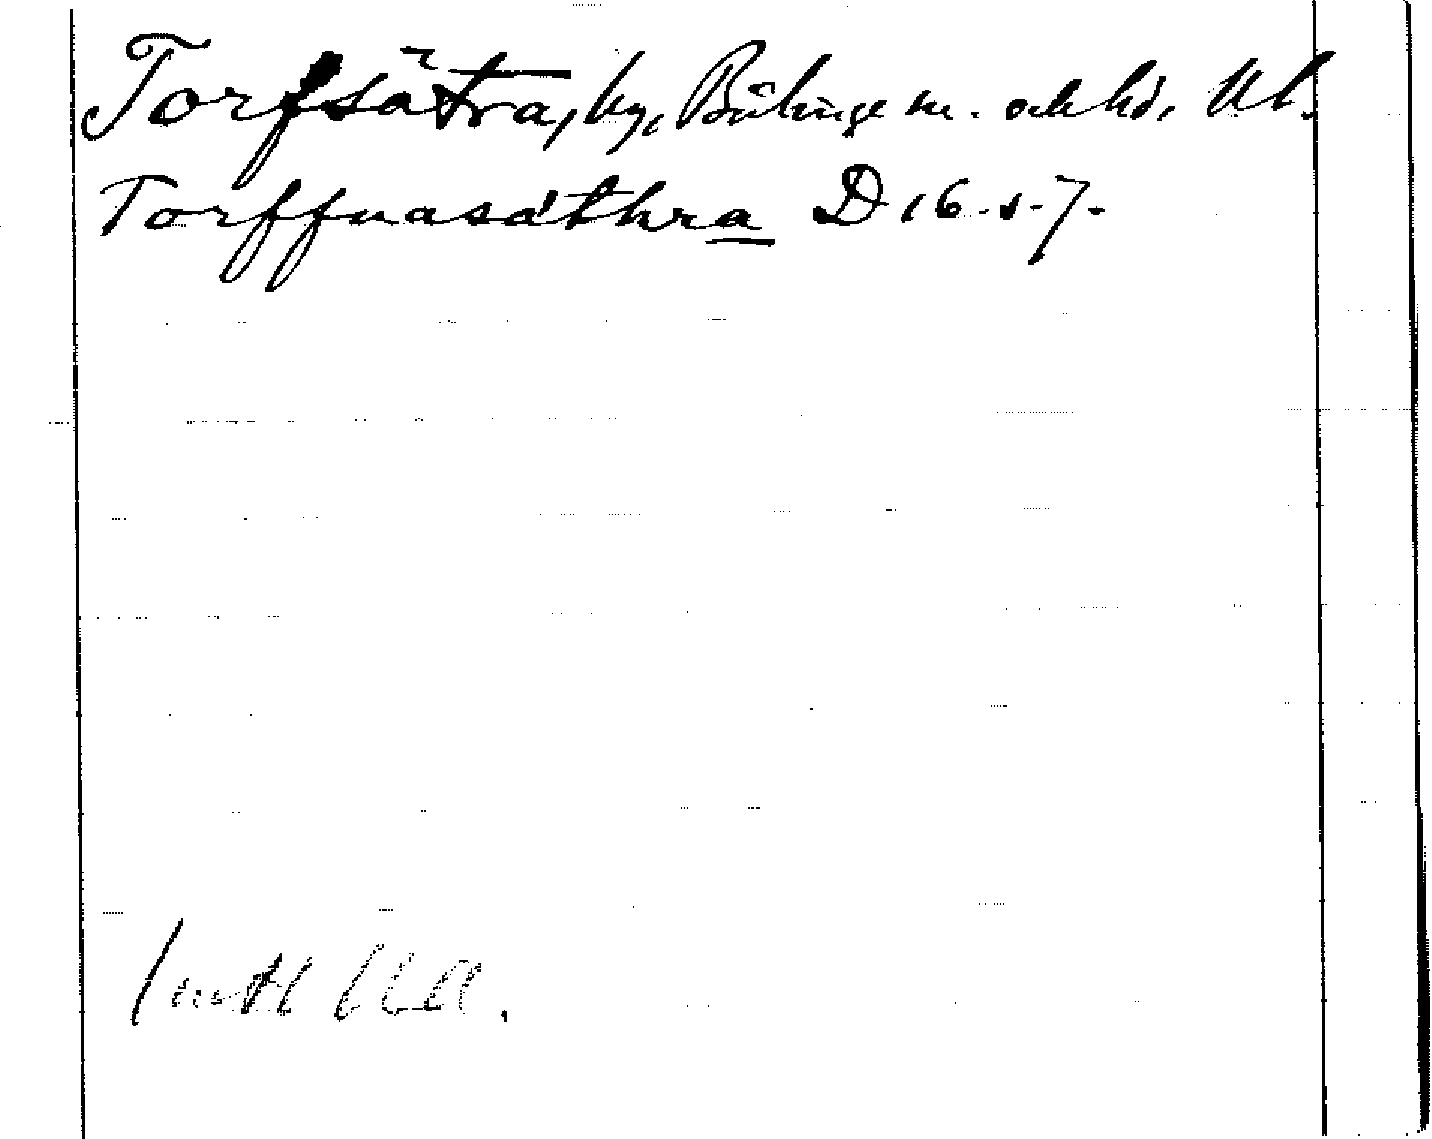 Torfsätra, by, Bälinge sn. och hd. Upl.
Torffnasäthra D 16. s. 7.